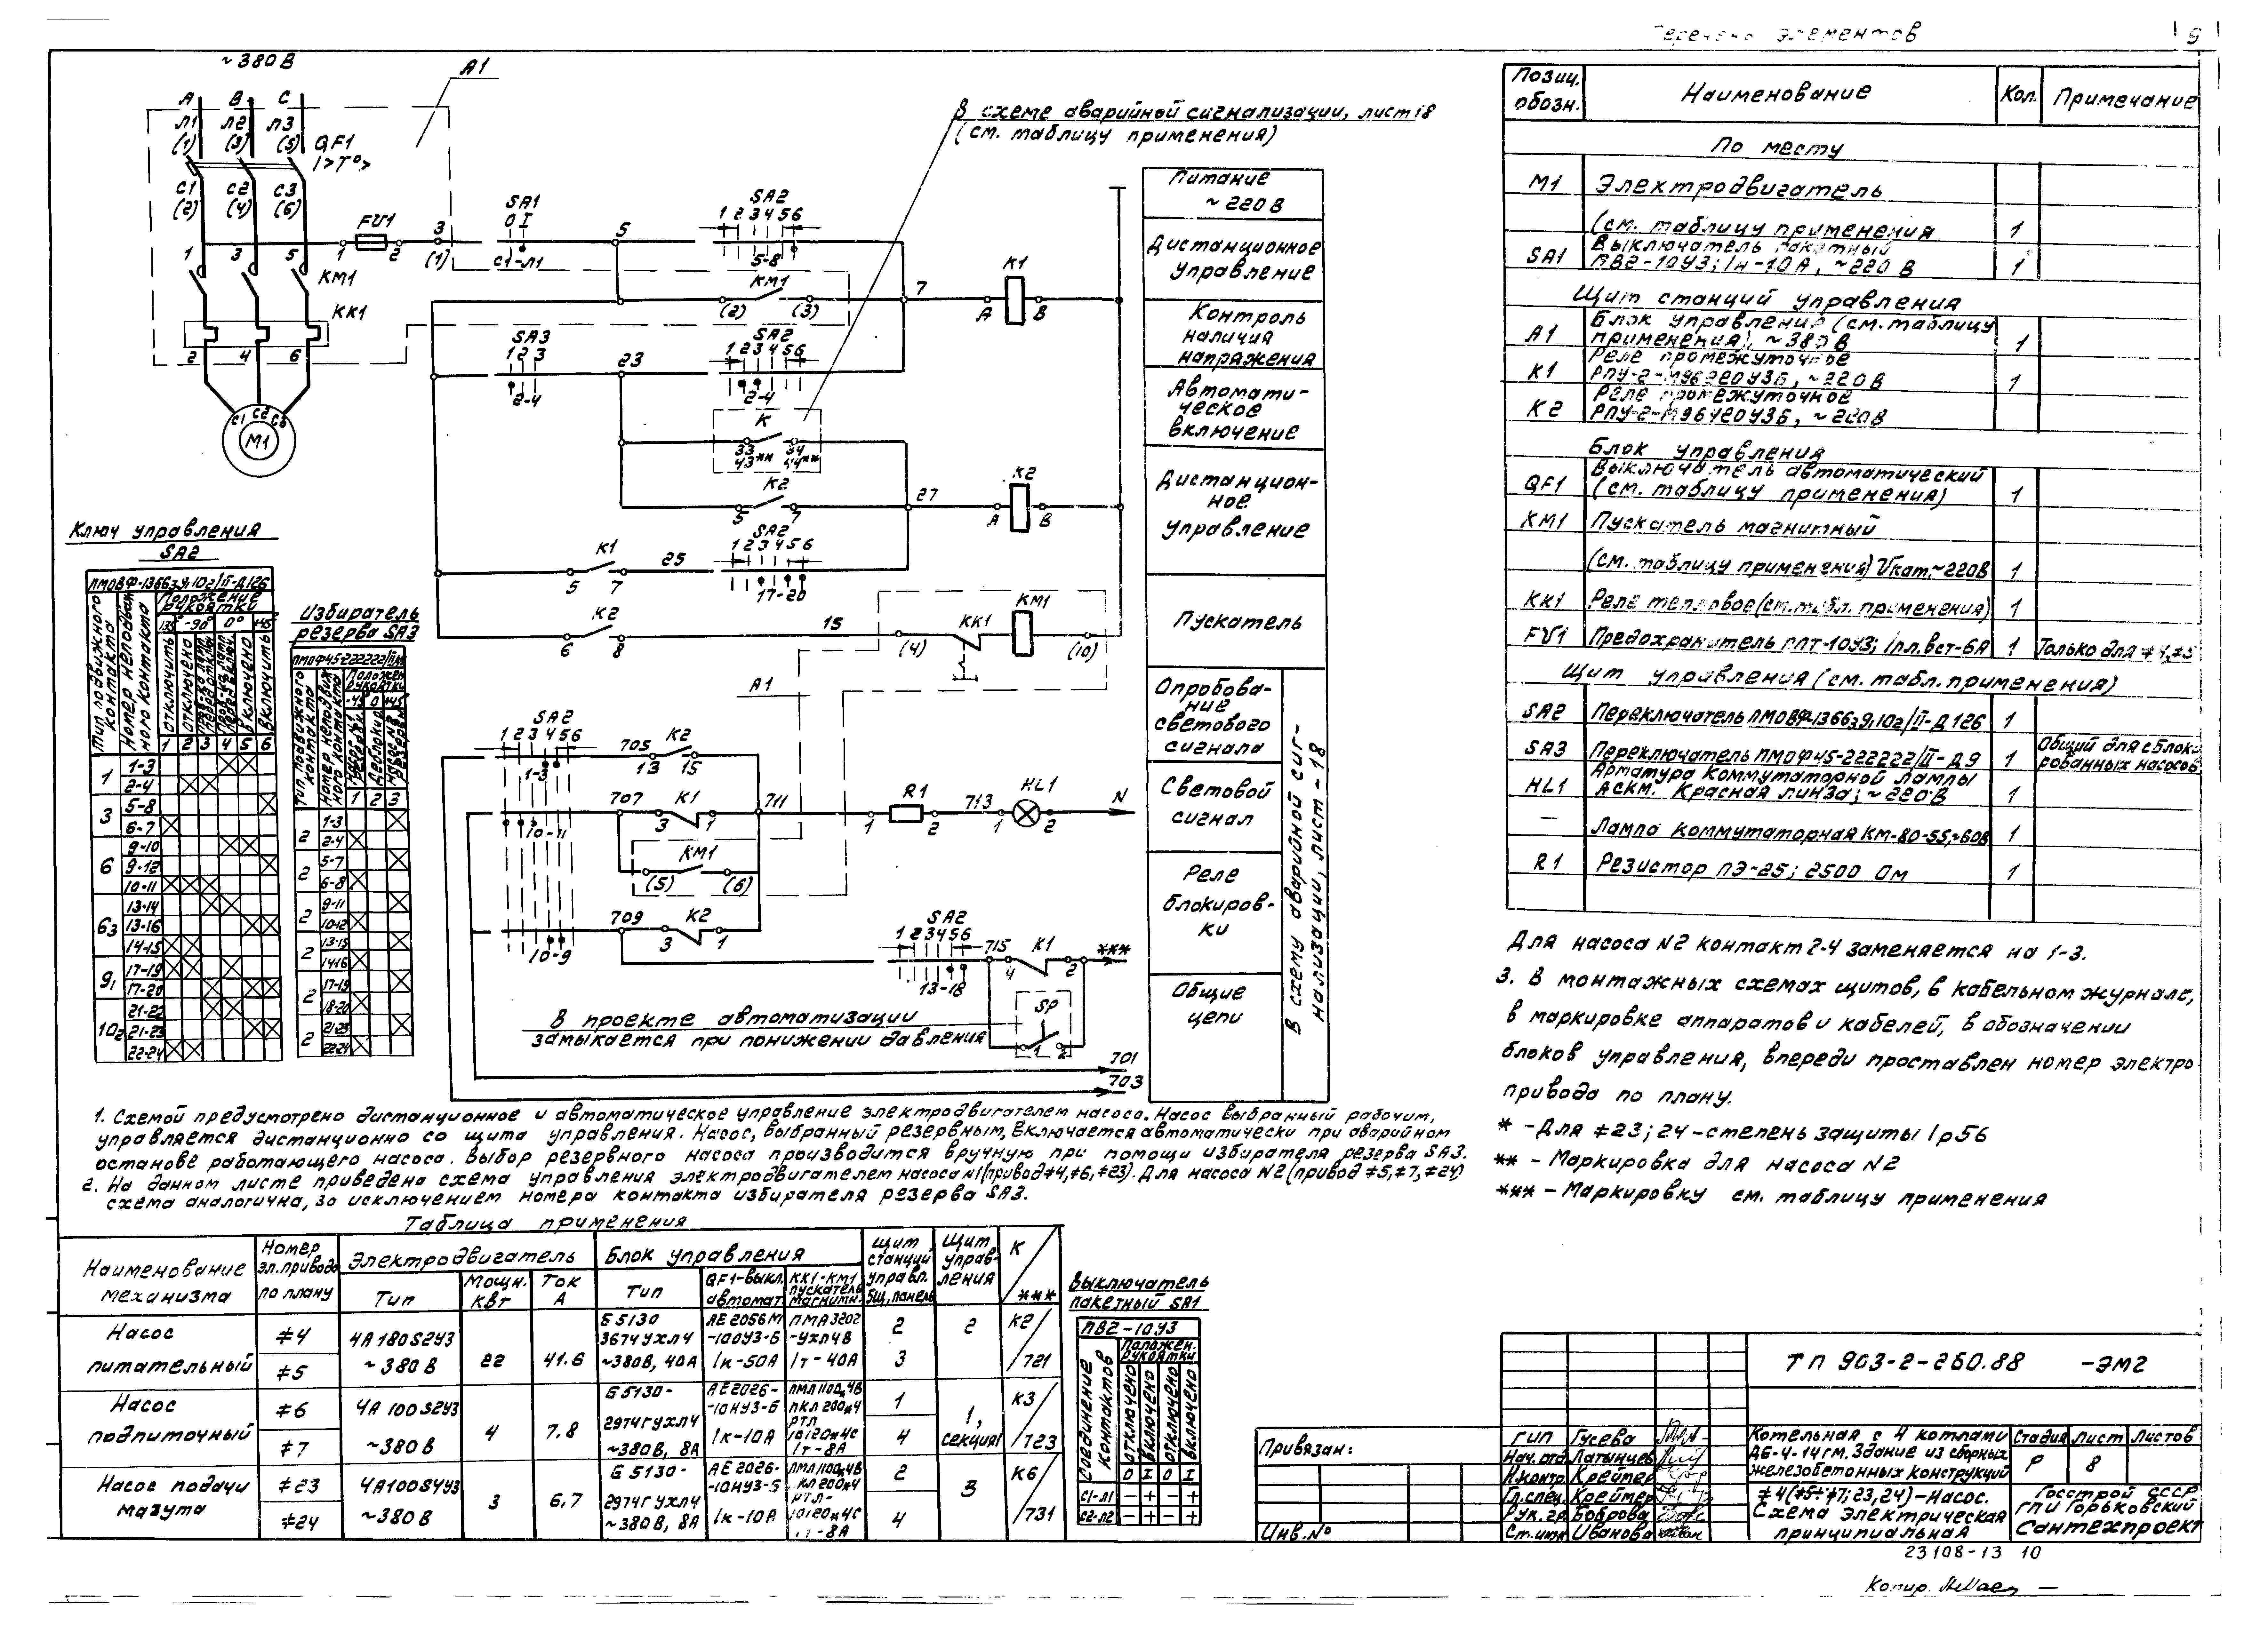 Перечень элементов
9
~380 В
А1
А В С
Л1 Л2 Л3
(1) (3) (5)
QF1
I>T°>
С1 С2 С3
(2) (4) (6)
FU1
1 3 5 1 2 3 (1)
КМ1
КК1
2 4 6
С1 С2 С3
М1
В схеме аварийной сигнализации, лист 18
(см. таблицу применения)
SA1
0 I
С1-Л1
5
SA2
1 2 3 4 5 6
5-8
КМ1
(2) (3)
7
К1
А В
SA3
1 2 3
2-4
23
SA2
1 2 3 4 5 6
2-4
К
33 34
43** 44**
К2
5 7
27
К2
А В
К1
5 7
25
SA2
1 2 3 4 5 6
17-20
К2
6 8
15
(4)
КК1
КМ1
(10)
А1
SA2
1 2 3 4 5 6
1-3
705
К2
13 15
707
К1
3 1
711
R1
1 2
713
HL1
1 2
N
10-11
КМ1
(5) (6)
709
К2
3 1
10-9
SA2
1 2 3 4 5 6
13-18
715
К1
4 2
***
SP
1 2
В проекте автоматизации
замыкается при понижении давления
701
703
Питание
~220 В
Дистанционное
управление
Контроль
наличия
напряжения
Автомати-
ческое
включение
Дистанцион-
ное
управление
Пускатель
Опробова-
ние
светового
сигнала
Световой
сигнал
Реле
блокиров-
ки
Общие
цепи
В схему аварийной сиг-
нализации, лист-18
Ключ управления
SA2
Тип подвижного контакта
Номер неподвиж ного контакта
Положение
рукоятки
135° -90° 0° +45°
Отключить
Отключено
Включено
Включить
1 2 3 4 5 6
1 1-3
2-4
3 5-8
6-7
6 9-10
9-12
10-11
63 13-14
13-16
14-15
91 17-19
17-20
102 21-22
21-23
22-24
Избиратель
резерва SA3
Тип подвижного контакта
Положен
рукоятки
-45 0 +45
1 2 3
2 1-3
2-4
2 5-7
6-8
2 9-11
10-12
2 13-15
14-16
2 17-19
18-20
2 21-23
22-24
1. Схемой предусмотрено дистанционное и автоматическое управление электродвигателем насоса. Насос выбранный рабочим,
управляется дистанционно со щита управления. Насос, выбранный резервным, включается автоматически при аварийном
останове работающего насоса. Выбор резервного насоса производится вручную при помощи избирателя резерва SA3.
2. На данном листе приведена схема управления электродвигателем насоса №1(привод ≠4,≠6,≠23). Для насоса №2 (привод ≠5,≠7,≠24)
схема аналогична, за исключением номера контакта избирателя резерва SA3.
Таблица применения
Наименование
механизма
Номер
эл.привода
по плану
Электродвигатель
Тип
Мощн.
квт
Ток
А
Блок управления
Тип
QF1-выкл.
автомат.
КК1-КМ1
пускатель
магнитн.
Щит
станций
управл.
Щит
управ-
ления
К
***
Насос
питательный
≠4
≠5
4А180S2У3
~380 В
22
41.6
Б5130
3674УХЛ4
~380В, 40А
АЕ2056М
-100У3-Б
Iк-50А
ПМА3202
-УХЛ4В
Iт-40А
2
3
2
К2
721
Насос
подпиточный
≠6
≠7
4А100S2У3
~380 В
4
7.8
Б5130-
2974ГУХЛ4
~380В, 8А
АЕ2026-
-10НУ3-Б
Iк-10А
Iт-8А
1
4
1,
секция
К3
723
Насос подачи
мазута
≠23
≠24
4А100S4У3
~380 В
3
6,7
Б5130-
2974ГУХЛ4
~380В, 8А
АЕ2026-
-10НУ3-Б
Iк-10А
2
4
3
К6
731
Выключатель
пакетный SA1
ПВ2-10У3
Соединение контактов
Положен.
рукоятки
отключено
включено
отключено
включено
0 I 0 I
С1-Л1 - + - +
С2-Л2 - + - +
Позиц.
обозн.
Наименование
Кол.
Примечание
По месту
М1 Электродвигатель
(см. таблицу применения 1
SA1 Выключатель пакетный
ПВ2-10У3; Iн-10А, ~220 В 1
Щит станций управления
А1 Блок управления (см. таблицу
применения), ~380В 1
К1 Реле промежуточное
РПУ-2-М96220У3Б, ~220В 1
К2 Реле промежуточное
РПУ-2-М96420У3Б, ~220В
Блок управления
QF1 Выключатель автоматический
(см. таблицу применения) 1
КМ1 Пускатель магнитный
(см. таблицу применения) Uкат.~220В 1
КК1 Реле тепловое (см.табл. применения) 1
FU1 Предохранитель ППТ-10У3; Iпл.вст-6А 1 Только для ≠4,≠5
Щит управления (см. табл. применения)
SA2 Переключатель ПМОВФ-136639.102/II-Д126 1
SA3 Переключатель ПМОФ45-222222/III-Д9 1 Общий для сблоки
рованных насосов
HL1 Арматура коммутаторной лампы
АСКМ. Красная линза; ~220В 1
— Лампа коммутаторная КМ-80-55,~60В 1
R1 Резистор ПЭ-25; 2500 Ом 1
Для насоса №2 контакт 2-4 заменяется на 1-3.
3. В монтажных схемах щитов, в кабельном журнале,
в маркировке аппаратов и кабелей, в обозначении
блоков управления, впереди проставлен номер электро-
привода по плану.
* - Для ≠23; 24 - степень защиты Ip56
** - Маркировка для насоса №2
*** - Маркировку см. таблицу применения
ТП 903-2-260.88 -ЭМ2
Привязан:
Инв.№
ГИП Гусева
Нач.отд Латынцев
Н.контр. Креймер
Гл.спец. Креймер
Рук.гр. Боброва
Ст.инж Иванова
Котельная с 4 котлами
ДЕ-4-14гм. Здание из сборных
железобетонных конструкций
≠4(≠5÷≠7; 23,24)-Насос.
Схема электрическая
принципиальная
Стадия Лист Листов
Р 8
Госстрой СССР
ГПИ Горьковский
Сантехпроект
23108-13 10
Копир.